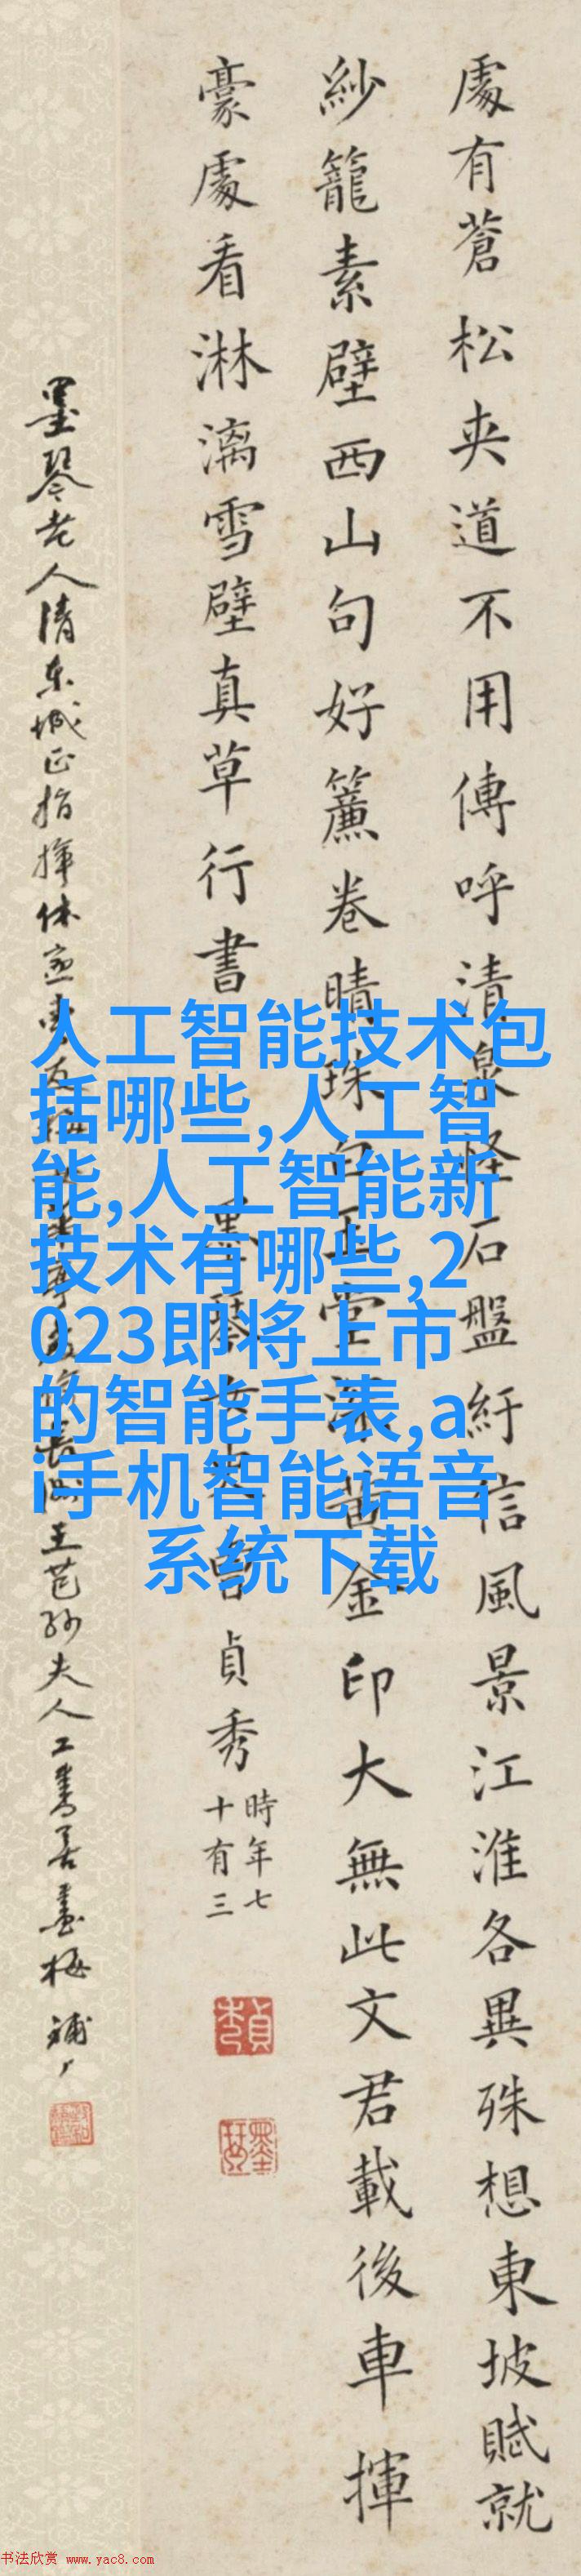 處有蒼松夾道不用傳呼清泉怪石盤紆信風景江淮各異殊想東坡賦就
紗籠素壁西山句好簾卷晴珠白玉堂深黃金印大無此文君載後車揮
豪處看淋漓雪壁真草行書
墨琴女史曹貞秀
時年七
十有三
墨琴老人清东城正指揮休 長洲王芑孙夫人工書善畫梅
人工智能技术包
括哪些,人工智
能,人工智能新
技术有哪些,2
023即将上市
的智能手表,a
i手机智能语音
系统下载
书法欣赏 www.yac8.com